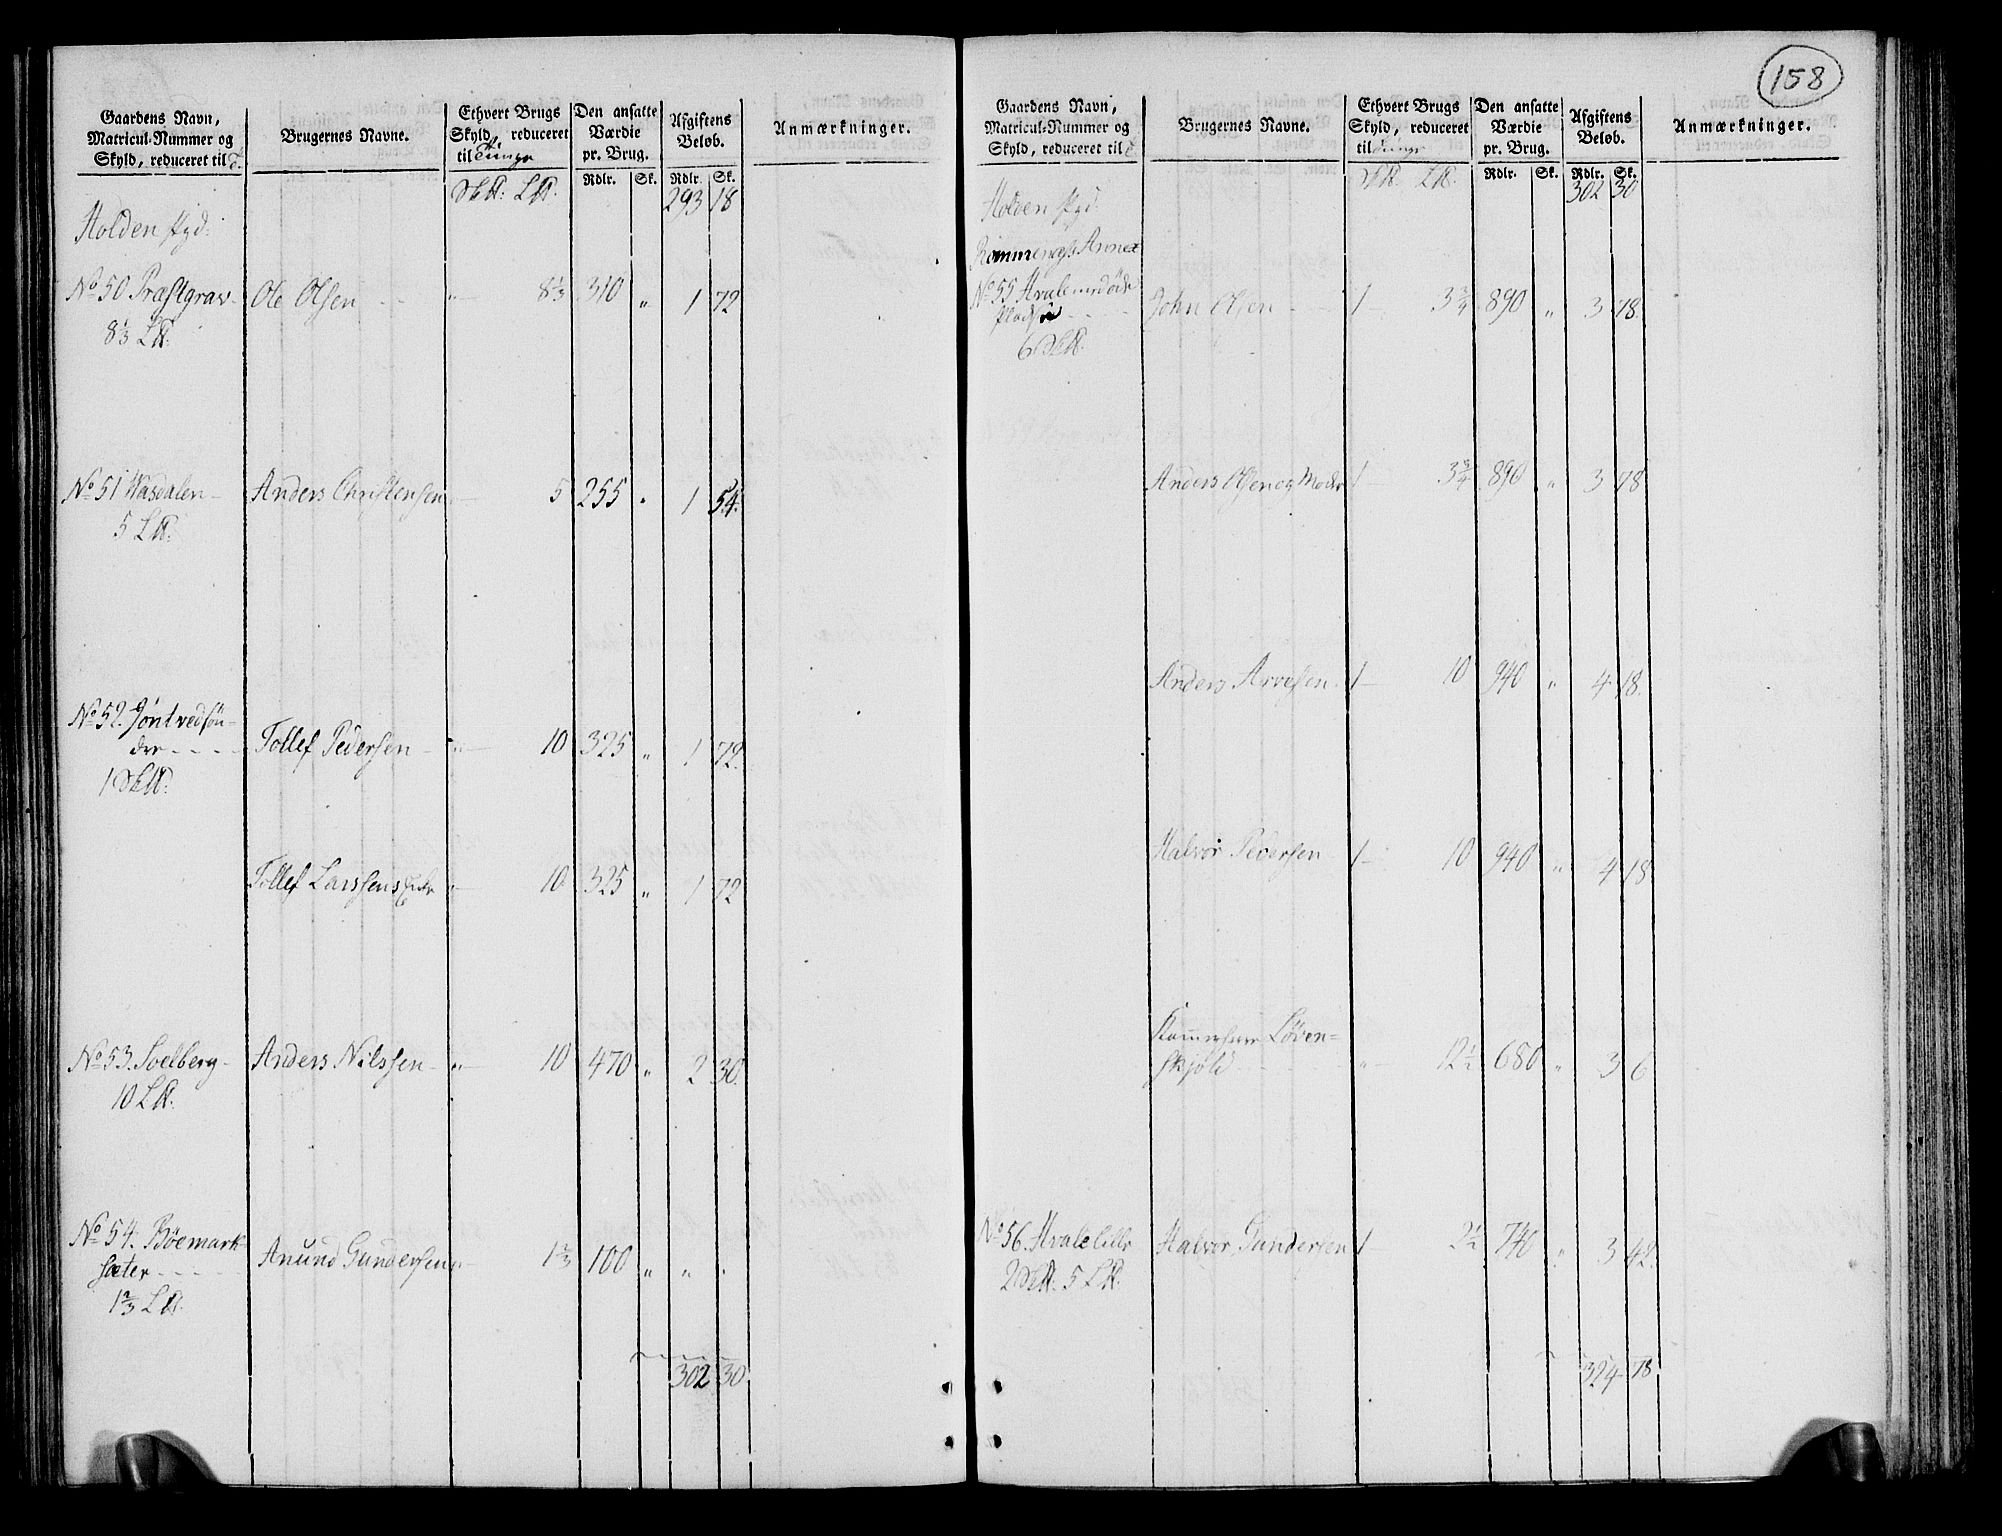 158
Gaardens Navn, Matricul-Nummer og Skyld, reduceret til | Brugernes Navne. | Ethvert Brugs Skyld, reduceret til Tunge | Den ansatte Værdie pr. Brug. | Afgiftens Beløb. | Anmærkninger.
Rdlr. Sk. Rdlr. Sk.
293 18
Holden
No 50 Præstgrav- Ole Olsen " 8 1/3 310 " 1 72
8 1/3
No 51 Wasdalen Anders Christensen 5 255 " 1 54.
5
No 52. Jontvedsön-
dre Tollef Pedersen " 10 325 " 1 72.
1
Tollef Larssens Enke " 10 325 " 1 72
No 53. Soelberg- Anders Nilssen " 10 470 " 2 30.
10
No 54. Böemark-
sæter Anund Gundersen " 1 2/3 100 " "
1 2/3
302 30
Gaardens Navn, Matricul-Nummer og Skyld, reduceret til | Brugernes Navne. | Ethvert Brugs Skyld, reduceret til Tunge | Den ansatte Værdie pr. Brug. | Afgiftens Beløb. | Anmærkninger.
Rdlr. Sk. Rdlr. Sk.
302 30
Holden
Annex
No 55
John Olsen 1 3 3/4 890 " 3 78.
6
Anders Olsen og Moder 1 3 3/4 890 " 3 78
Anders Arvesen 1 10 940 " 4 18.
Halvor Pedersen 1 10 940 " 4 18.
Kammerherre Löven-
skjöld " 12 1/2 680 " 3 6
No 56. Hvale lille Halvor Gundersen 1 2 1/2 740 " 3 42.
2 5
324 78